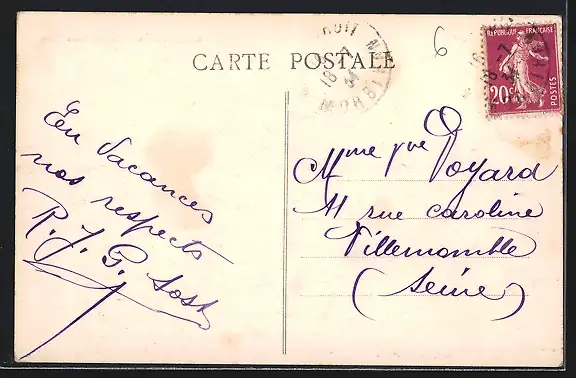 CARTE POSTALE
6
18-7
34
MORBIHAN
REPUBLIQUE FRANÇAISE
20c
POSTES
En Vacances
nos respects
R. J. G. Sost
Mme Vve Voyard
11 rue caroline
Villemomble
(Seine)